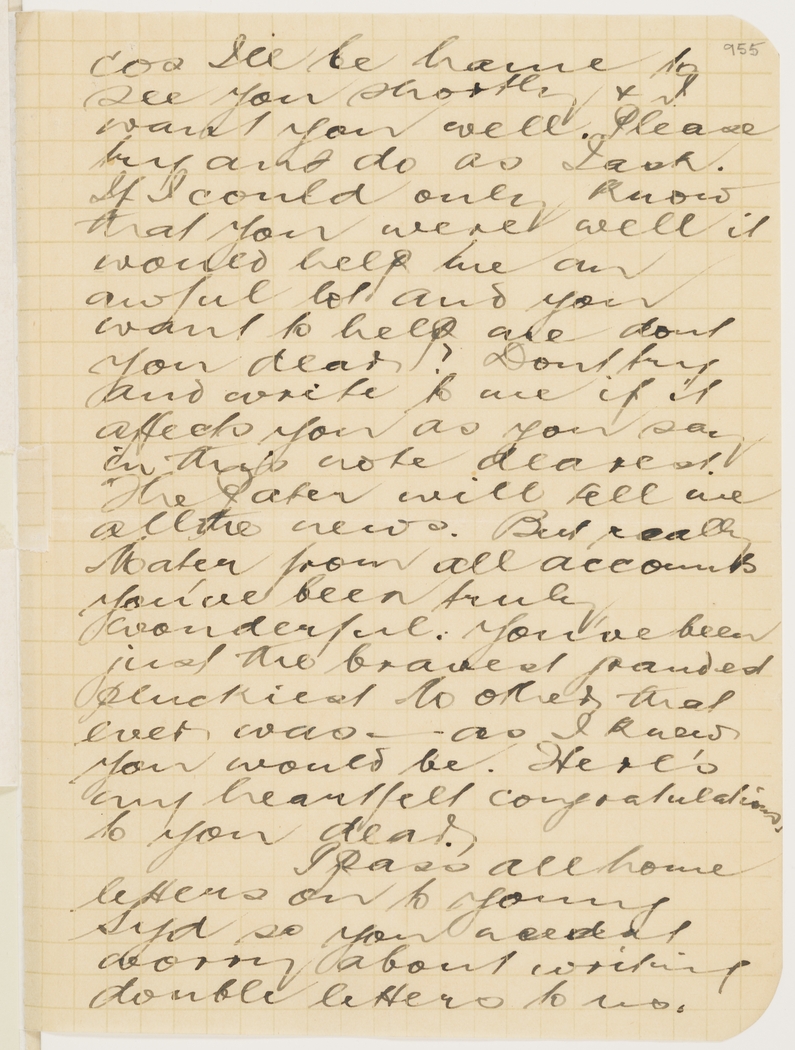 955
cos I'll be home to
see you shortly & I
want you well. Please
try and do as I ask.
If I could only know
that you were well it
would help me an
awful lot and you
want to help me dont
you dear? Dont try
and write to me if it
affects you as you say
in this note dearest.
The Pater will tell me
all the news. But really
Mater from all accounts
you've been truly
wonderful. You've been
just the bravest grandest
pluckiest Mother that
ever was — as I knew
you would be. Here's
my heartfelt congratulations
to you dear.
I pass all home
letters on to young
Syd so you needn't
worry about writing
double letters to us.